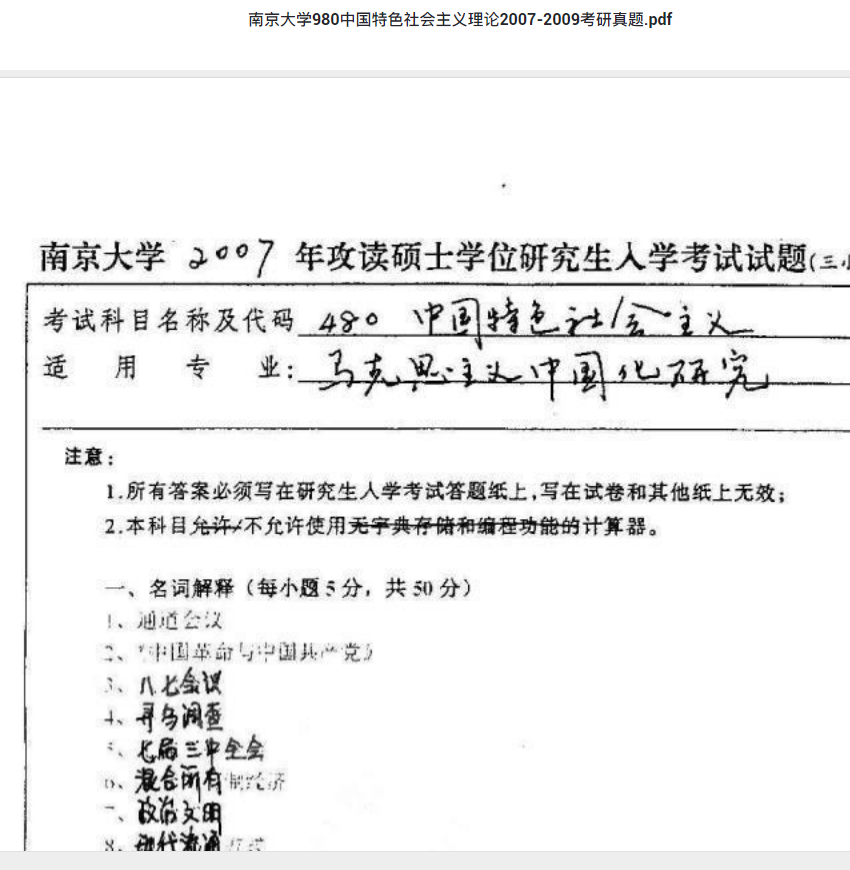 南京大学980中国特色社会主义理论2007-2009考研真题.pdf
南京大学 2007 年攻读硕士学位研究生入学考试试题(三小
考试科目名称及代码 480 中国特色社会主义
适用专业: 马克思主义中国化研究
注意:
1.所有答案必须写在研究生入学考试答题纸上,写在试卷和其他纸上无效;
2.本科目允许/不允许使用无字典存储和编程功能的计算器。
一、名词解释（每小题5分，共50分）
1、通道会议
2、《中国革命与中国共产党》
3、八七会议
4、寻乌调查
5、七届三中全会
6、混合所有制经济
7、政治文明
8、现代流通方式